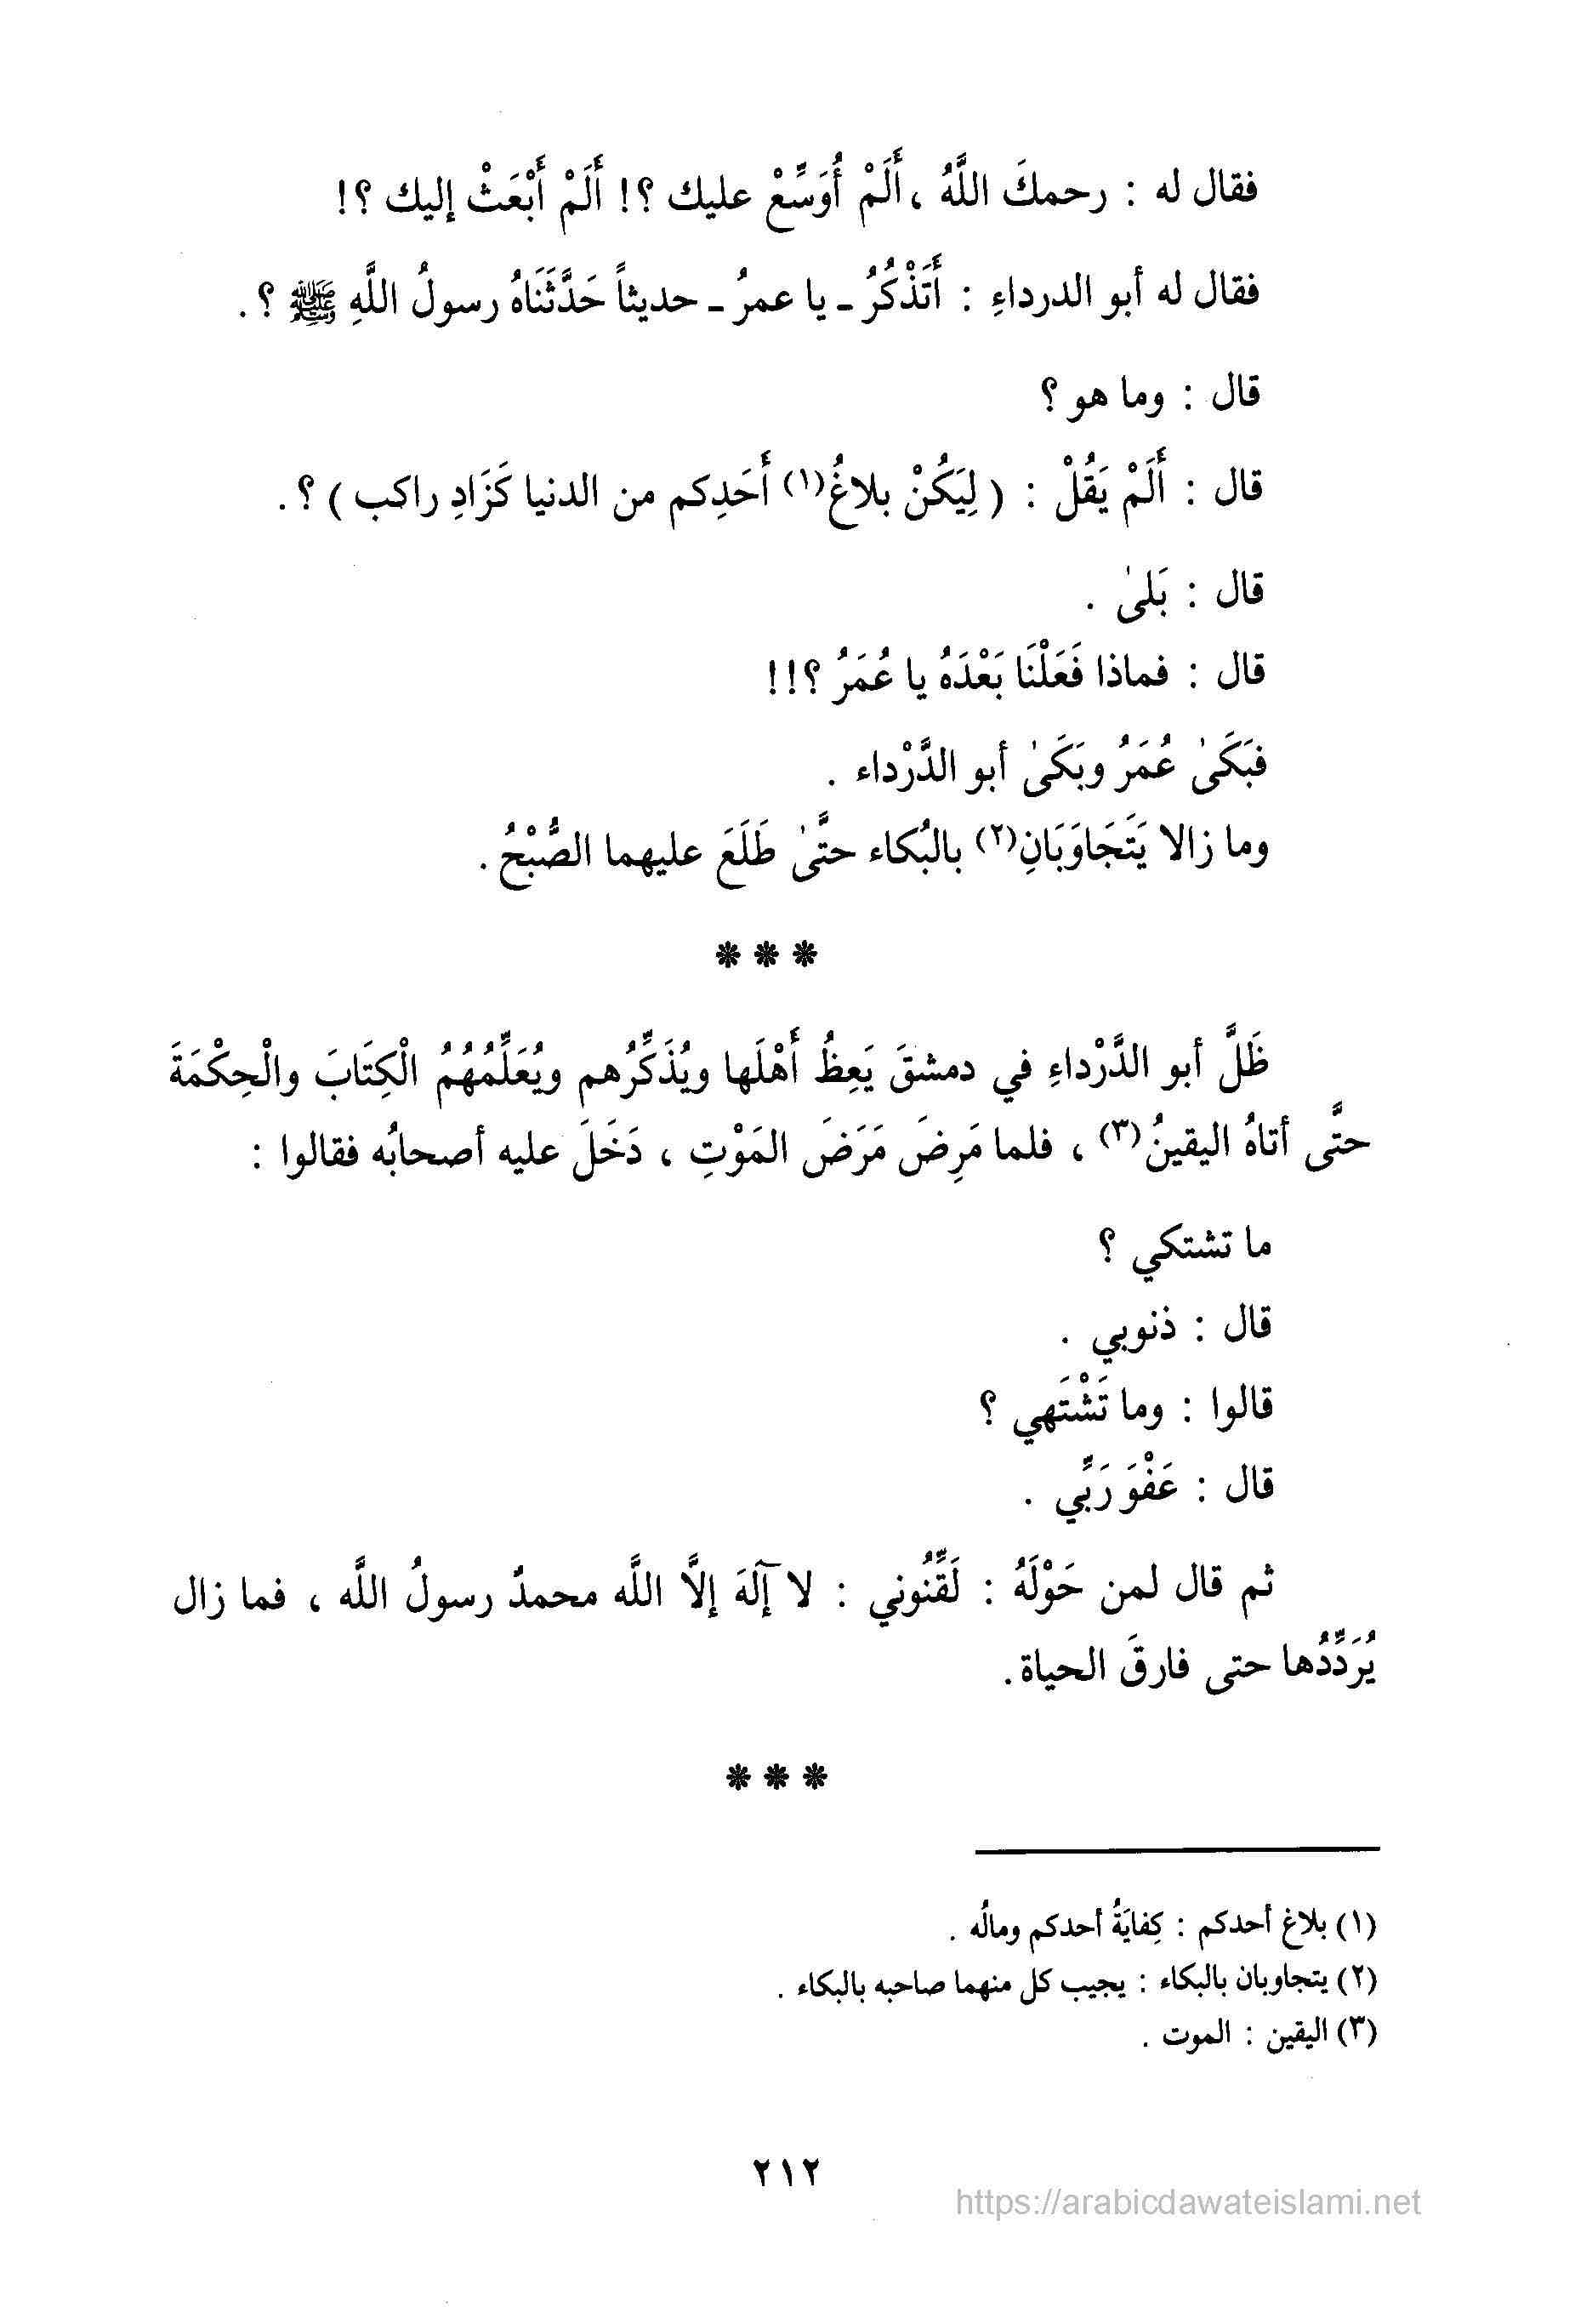 فقال له : رحمكَ اللَّهُ ، أَلَمْ أُوَسِّعْ عليك ؟! أَلَمْ أَبْعَثْ إليك ؟!
فقال له أبو الدرداءِ : أَتَذْكُرُ ـ يا عمرُ ـ حديثاً حَدَّثَنَاهُ رسولُ اللَّهِ ﷺ ؟ .
قال : وما هو ؟
قال : أَلَمْ يَقُلْ : ( لِيَكُنْ بلاغُ(١) أَحَدِكم من الدنيا كَزَادِ راكب ) ؟ .
قال : بَلىٰ .
قال : فماذا فَعَلْنَا بَعْدَهُ يا عُمَرُ ؟!!
فبَكَىٰ عُمَرُ وبَكَىٰ أبو الدَّرْداء .
وما زالا يَتَجَاوَبَانِ(٢) بالبُكاء حتَّىٰ طَلَعَ عليهما الصُّبْحُ .
❋ ❋ ❋
ظَلَّ أبو الدَّرْداءِ في دمشقَ يَعِظُ أَهْلَها ويُذَكِّرُهم ويُعَلِّمُهُمُ الْكِتَابَ والْحِكْمَةَ
حتَّى أتاهُ اليقينُ(٣) ، فلما مَرِضَ مَرَضَ المَوْتِ ، دَخَلَ عليه أصحابُه فقالوا :
ما تشتكي ؟
قال : ذنوبي .
قالوا : وما تَشْتَهي ؟
قال : عَفْوَ رَبِّي .
ثم قال لمن حَوْلَهُ : لَقِّنُوني : لا آلهَ إلَّا اللَّه محمدٌ رسولُ اللَّه ، فما زال
يُرَدِّدُها حتى فارقَ الحياة .
❋ ❋ ❋
(١) بلاغ أحدكم : كِفايَةُ أحدكم ومالُه .
(٢) يتجاوبان بالبكاء : يجيب كل منهما صاحبه بالبكاء .
(٣) اليقين : الموت .
٢١٢
https://arabicdawateislami.net